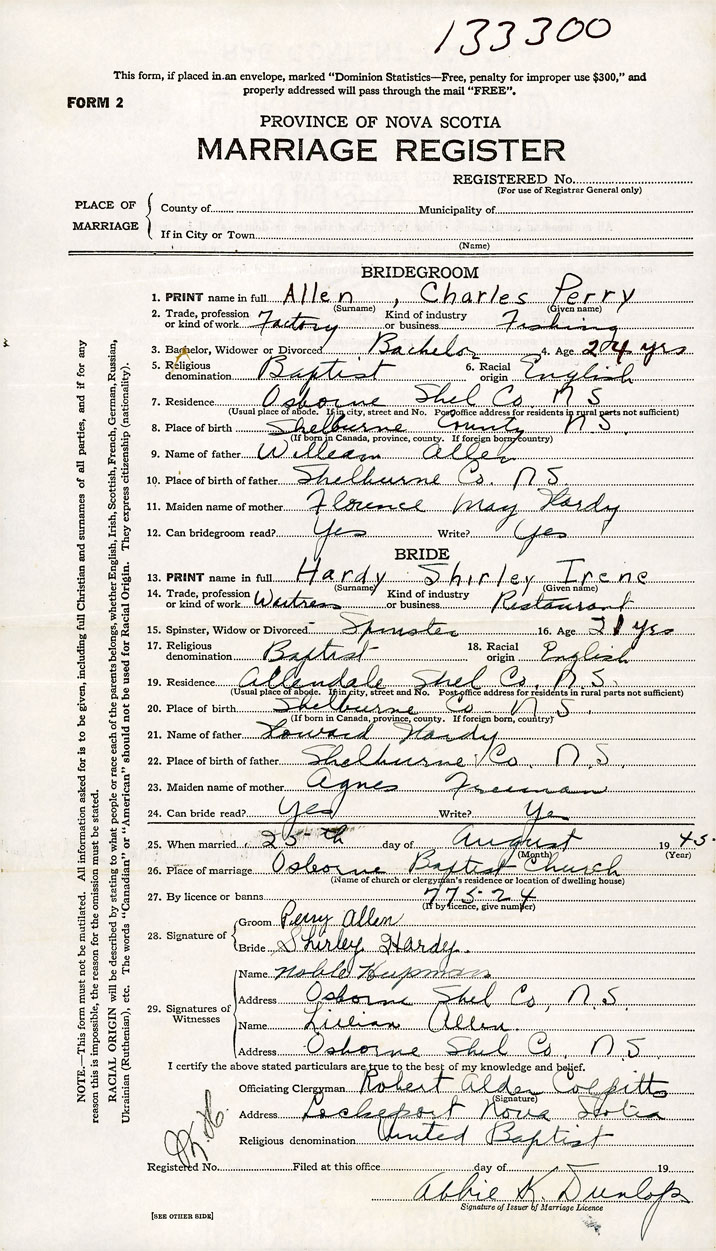 133300
This form, if placed in an envelope, marked "Dominion Statistics—Free, penalty for improper use $300," and
properly addressed will pass through the mail "FREE".
FORM 2
PROVINCE OF NOVA SCOTIA
MARRIAGE REGISTER
REGISTERED No.
(For use of Registrar General only)
PLACE OF MARRIAGE
County of Municipality of
If in City or Town
(Name)
BRIDEGROOM
1. PRINT name in full Allen, Charles Perry
(Surname) (Given name)
2. Trade, profession or kind of work Factory Kind of industry or business Fishing
3. Bachelor, Widower or Divorced Bachelor 4. Age 24 yrs
5. Religious denomination Baptist 6. Racial origin English
7. Residence Osborne Shel Co. N S
(Usual place of abode. If in city, street and No. Post office address for residents in rural parts not sufficient)
8. Place of birth Shelburne County N.S.
(If born in Canada, province, county. If foreign born, country)
9. Name of father William Allen
10. Place of birth of father Shelburne Co. N S.
11. Maiden name of mother Florence May Hardy
12. Can bridegroom read? Yes Write? Yes
BRIDE
13. PRINT name in full Hardy Shirley Irene
(Surname) (Given name)
14. Trade, profession or kind of work Waitress Kind of industry or business Restaurant
15. Spinster, Widow or Divorced Spinster 16. Age 21 yrs
17. Religious denomination Baptist 18. Racial origin English
19. Residence Allendale Shel Co. N.S.
(Usual place of abode. If in city, street and No. Post office address for residents in rural parts not sufficient)
20. Place of birth Shelburne Co N S.
(If born in Canada, province, county. If foreign born, country)
21. Name of father Howard Hardy
22. Place of birth of father Shelburne Co. N.S.
23. Maiden name of mother Agnes Freeman
24. Can bride read? Yes Write? Yes
25. When married 25th day of August 1945.
(Month) (Year)
26. Place of marriage Osborne Baptist Church
(Name of church or clergyman's residence or location of dwelling house)
27. By licence or banns 77524
(If by licence, give number)
28. Signature of Groom Perry Allen
Bride Shirley Hardy.
29. Signatures of Witnesses
Name Noble
Address Osborne Shel Co, N.S.
Name Lillian Allen.
Address Osborne Shel Co. N S.
I certify the above stated particulars are true to the best of my knowledge and belief.
Officiating Clergyman Robert Alden Colpitts
(Signature)
Address Lockeport Nova Scotia
Religious denomination United Baptist
Registered No. Filed at this office day of 19
Abbie K. Dunlop
Signature of Issuer of Marriage Licence
[SEE OTHER SIDE]
NOTE.—This form must not be mutilated. All information asked for is to be given, including full Christian and surnames of all parties, and if for any
reason this is impossible, the reason for the omission must be stated.
RACIAL ORIGIN will be described by stating to what people or race each of the parents belongs, whether English, Irish, Scottish, French, German, Russian,
Ukrainian (Ruthenian), etc. The words "Canadian" or "American" should not be used for Racial Origin. They express citizenship (nationality).